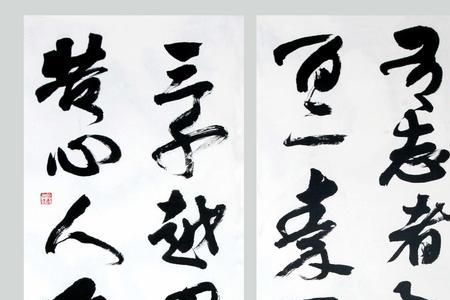 有志者
百二秦
三千越
苦心人